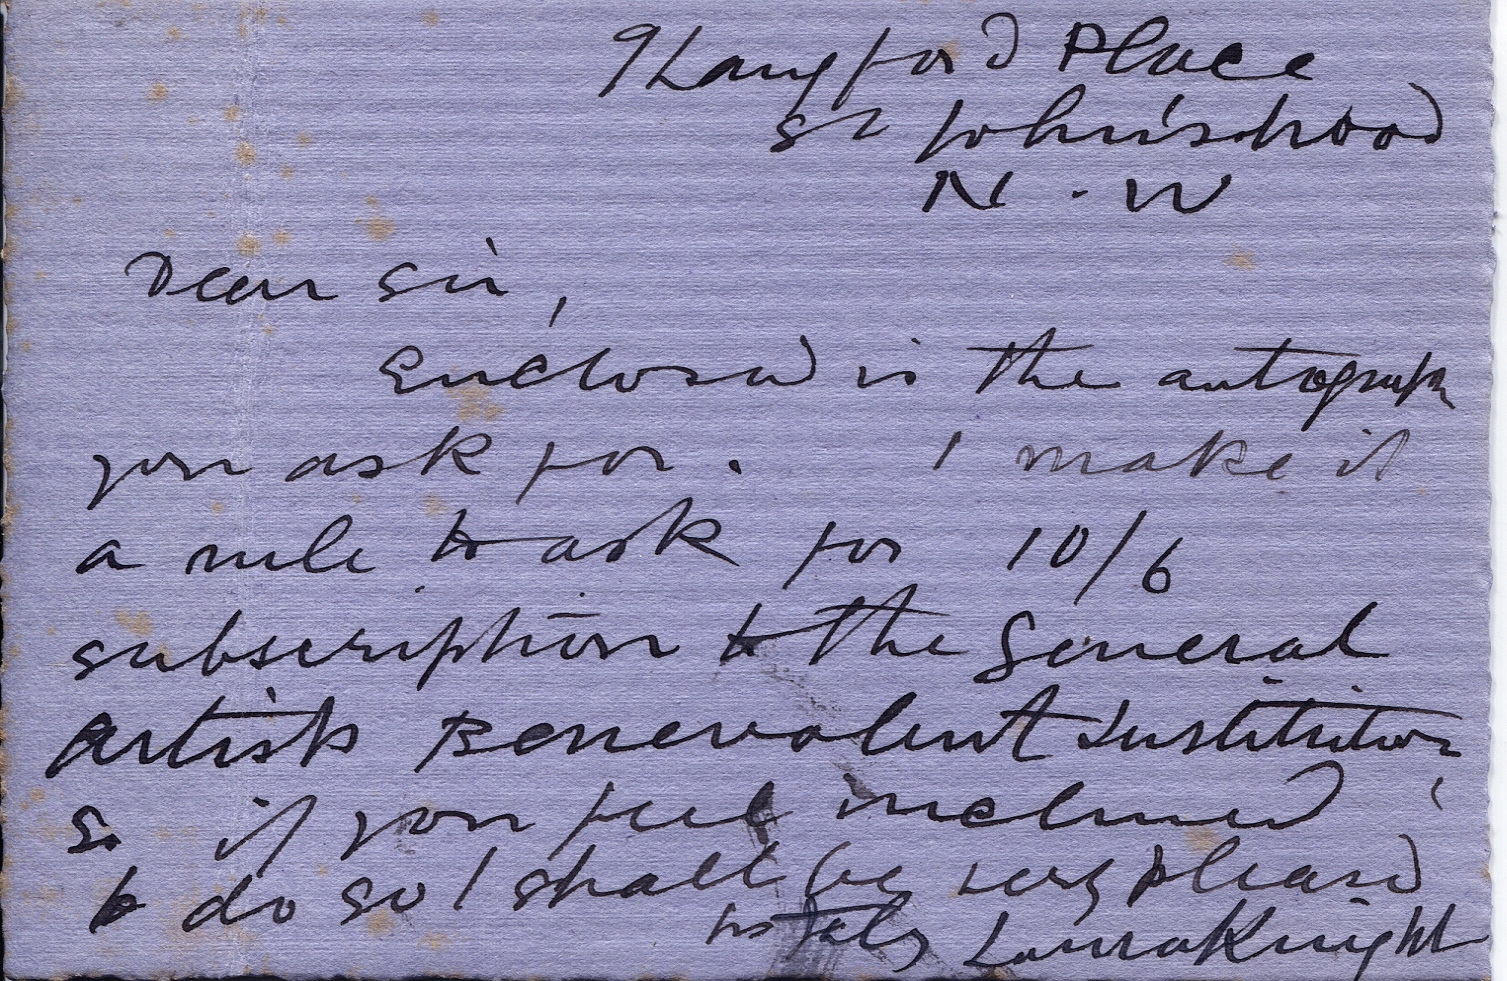 9 Langford Place
St John's Wood
N.W
Dear Sir,
Enclosed is the autograph
you ask for. I make it
a rule to ask for 10/6
subscription to the General
Artists Benevolent Institution,
so if you feel inclined
to do so I shall be very pleased
Laura Knight